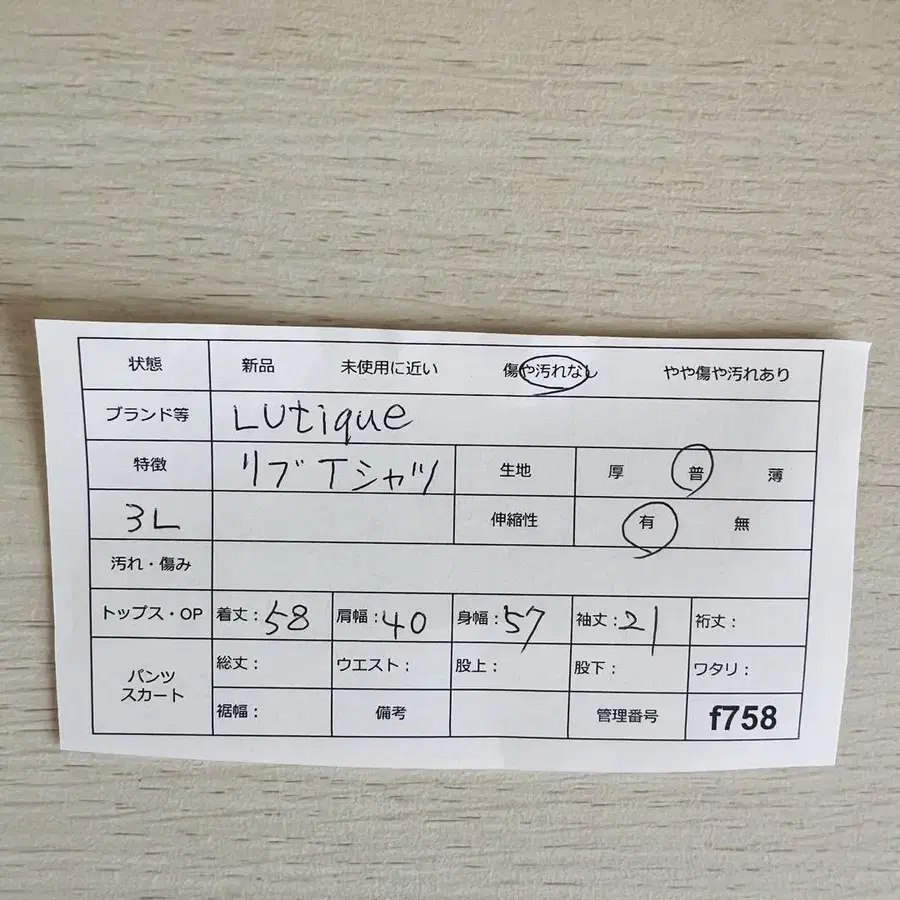 状態 新品 未使用に近い 傷や汚れなし やや傷や汚れあり
ブランド等 LUtique
特徴 リブTシャツ 生地 厚 普 薄
3L 伸縮性 有 無
汚れ・傷み
トップス・OP 着丈:58 肩幅:40 身幅:57 袖丈:21 裄丈:
パンツ スカート 総丈: ウエスト: 股上: 股下: ワタリ:
裾幅: 備考 管理番号 f758